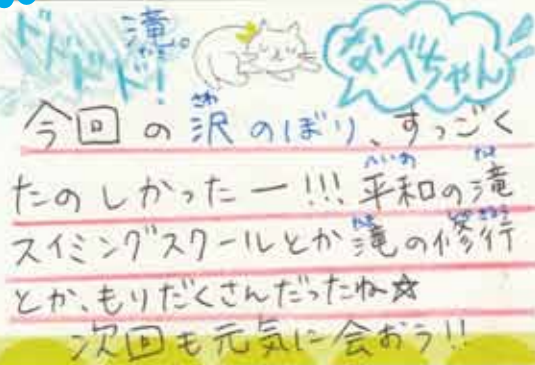 ドドドド! 滝。
なべちゃん
今回の沢のぼり、すっごく
たのしかったー!!! 平和の滝
スイミングスクールとか滝の修行
とか、もりだくさんだったね☆
次回も元気に会おう!!